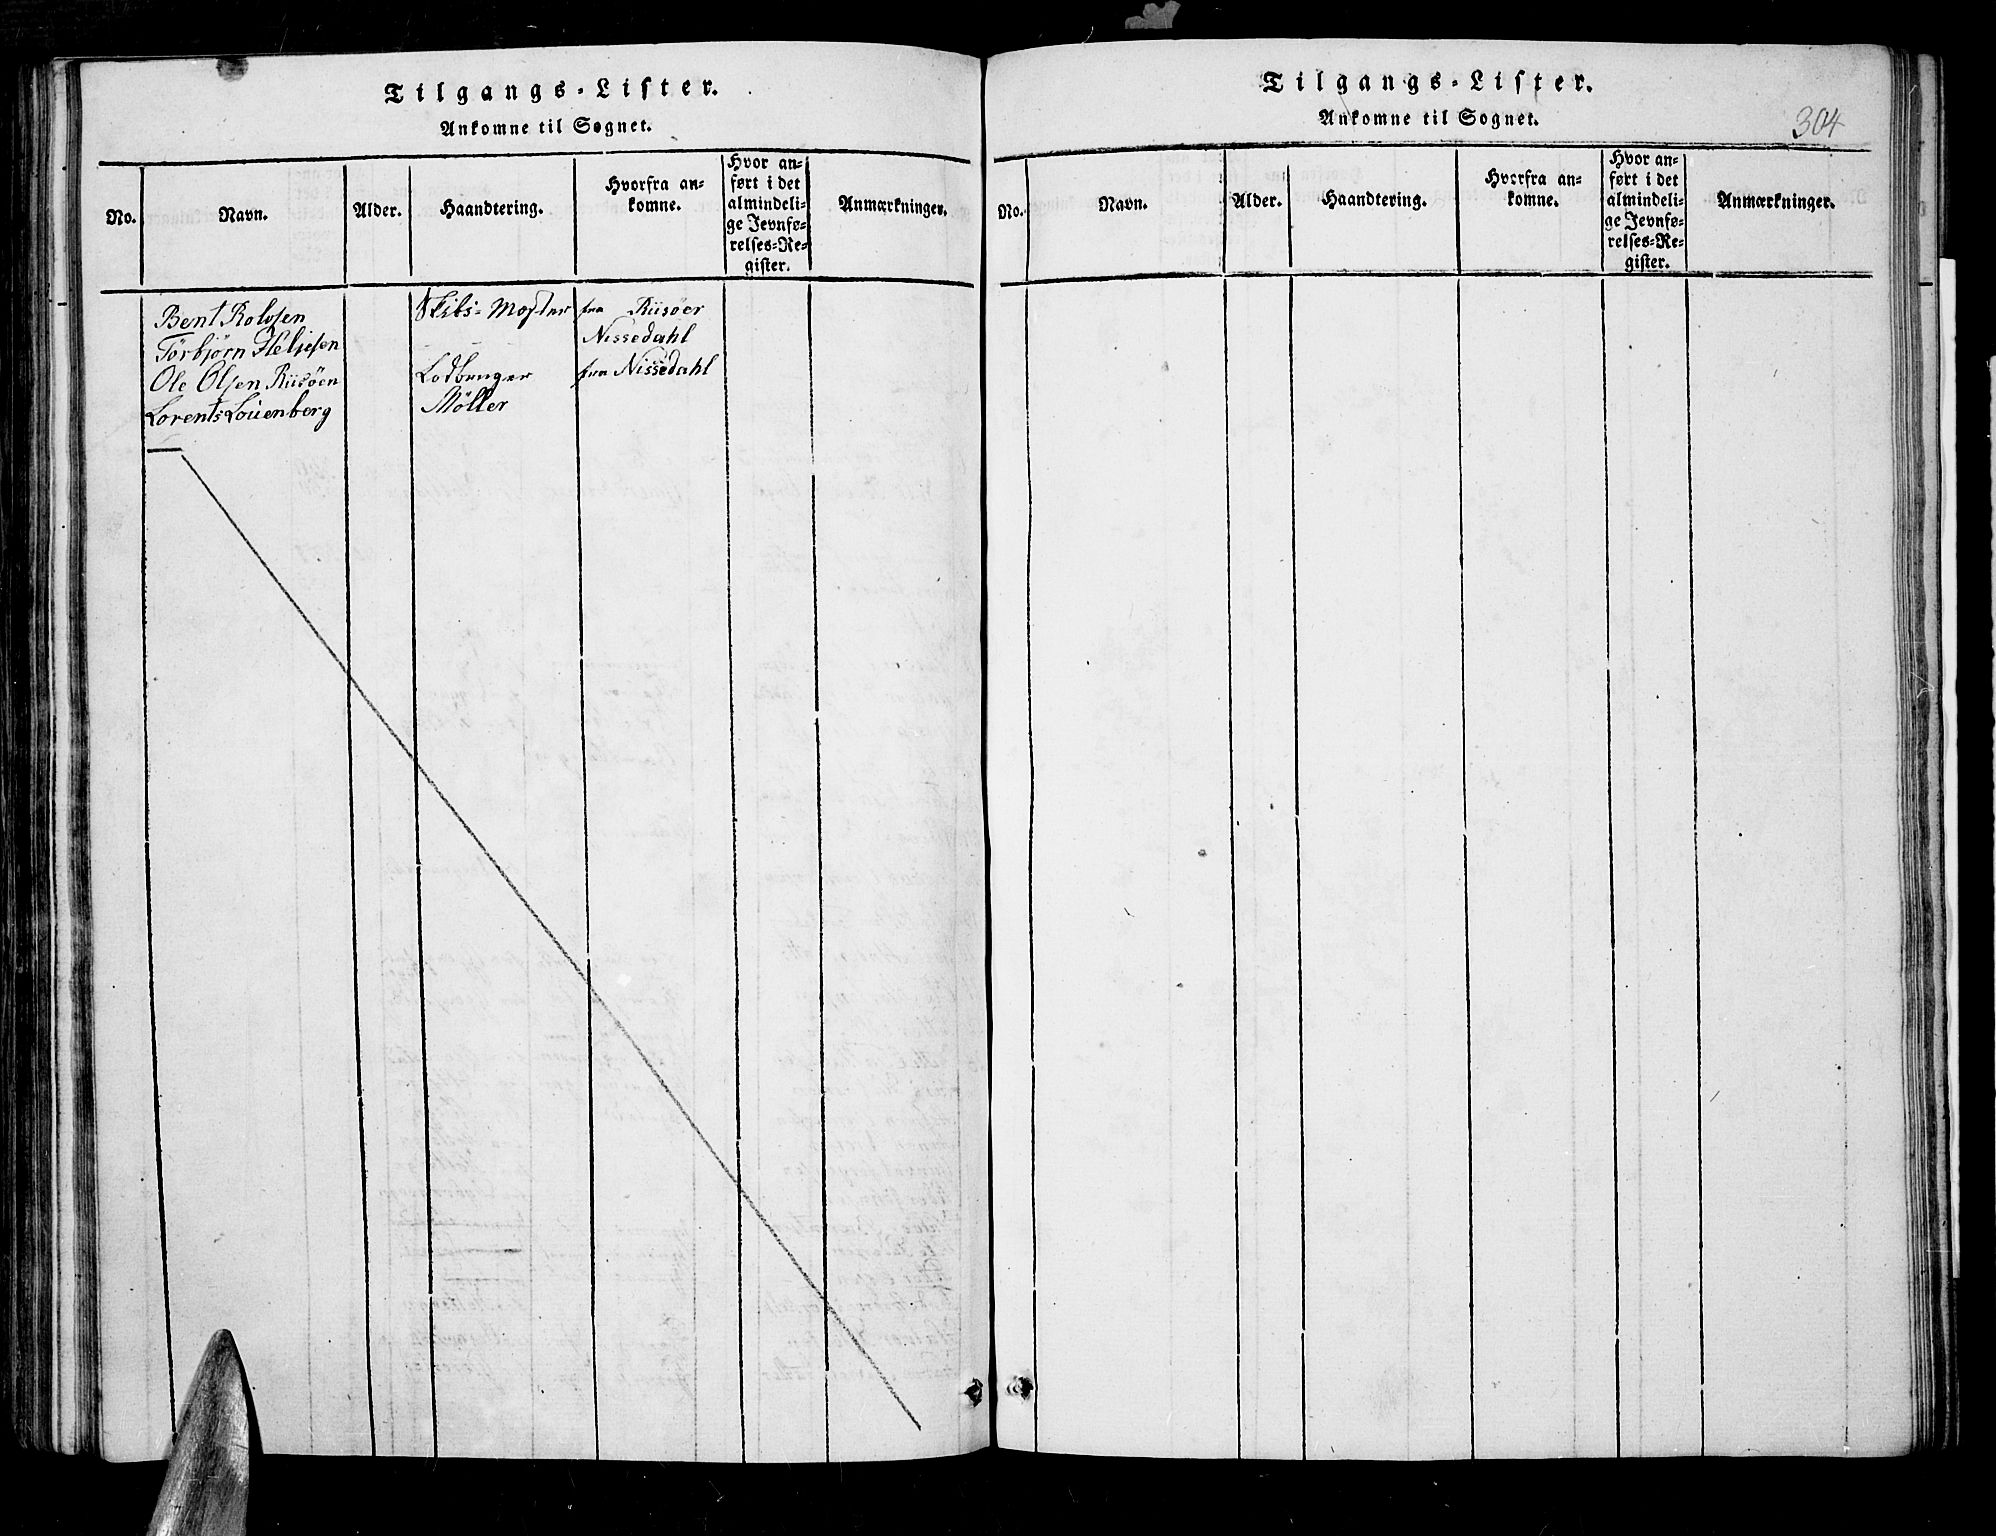 Tilgangs-Lister.
Ankomne til Sognet.
No. Navn. Alder. Haandtering. Hvorfra ankomne. Hvor anført i det almindelige Jevnførelses-Register. Anmærkninger.
Bent Rolvsen Skibs-Master fra Riisöer
Törbjörn Heljesen Nissedahl
Ole Olsen Riisöen Lodbringer fra Nissedahl
Lorents Loüenberg Möller
Tilgangs-Lister.
Ankomne til Sognet.
304
No. Navn. Alder. Haandtering. Hvorfra ankomne. Hvor anført i det almindelige Jevnførelses-Register. Anmærkninger.